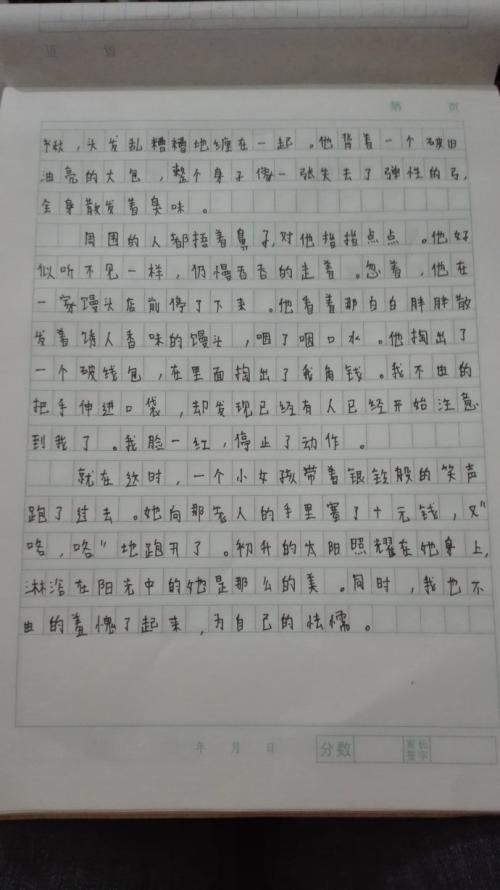 第 页
秋，头发乱糟糟地缠在一起。他背着一个破旧
油亮的大包，整个身子像一张失去了弹性的弓，
全身散发着臭味。
周围的人都捂着鼻子，对他指指点点。他好
似听不见一样，仍慢吞吞的走着。忽着，他在
一家馒头店前停了下来。他看着那白白胖胖散
发着诱人香味的馒头，咽了咽口水。他掏出了
一个破钱包，在里面掏出了几角钱。我不由的
把手伸进口袋，却发现已经有人已经开始注意
到我了。我脸一红，停止了动作。
就在这时，一个小女孩带着银铃般的笑声
跑了过去。她向那老人的手里塞了十元钱，又“
咯，咯”地跑开了。初升的太阳照耀在她身上，
淋浴在阳光中的她是那么的美。同时，我也不
由的羞愧了起来，为自己的怯懦。
年 月 日 分数 家长签字